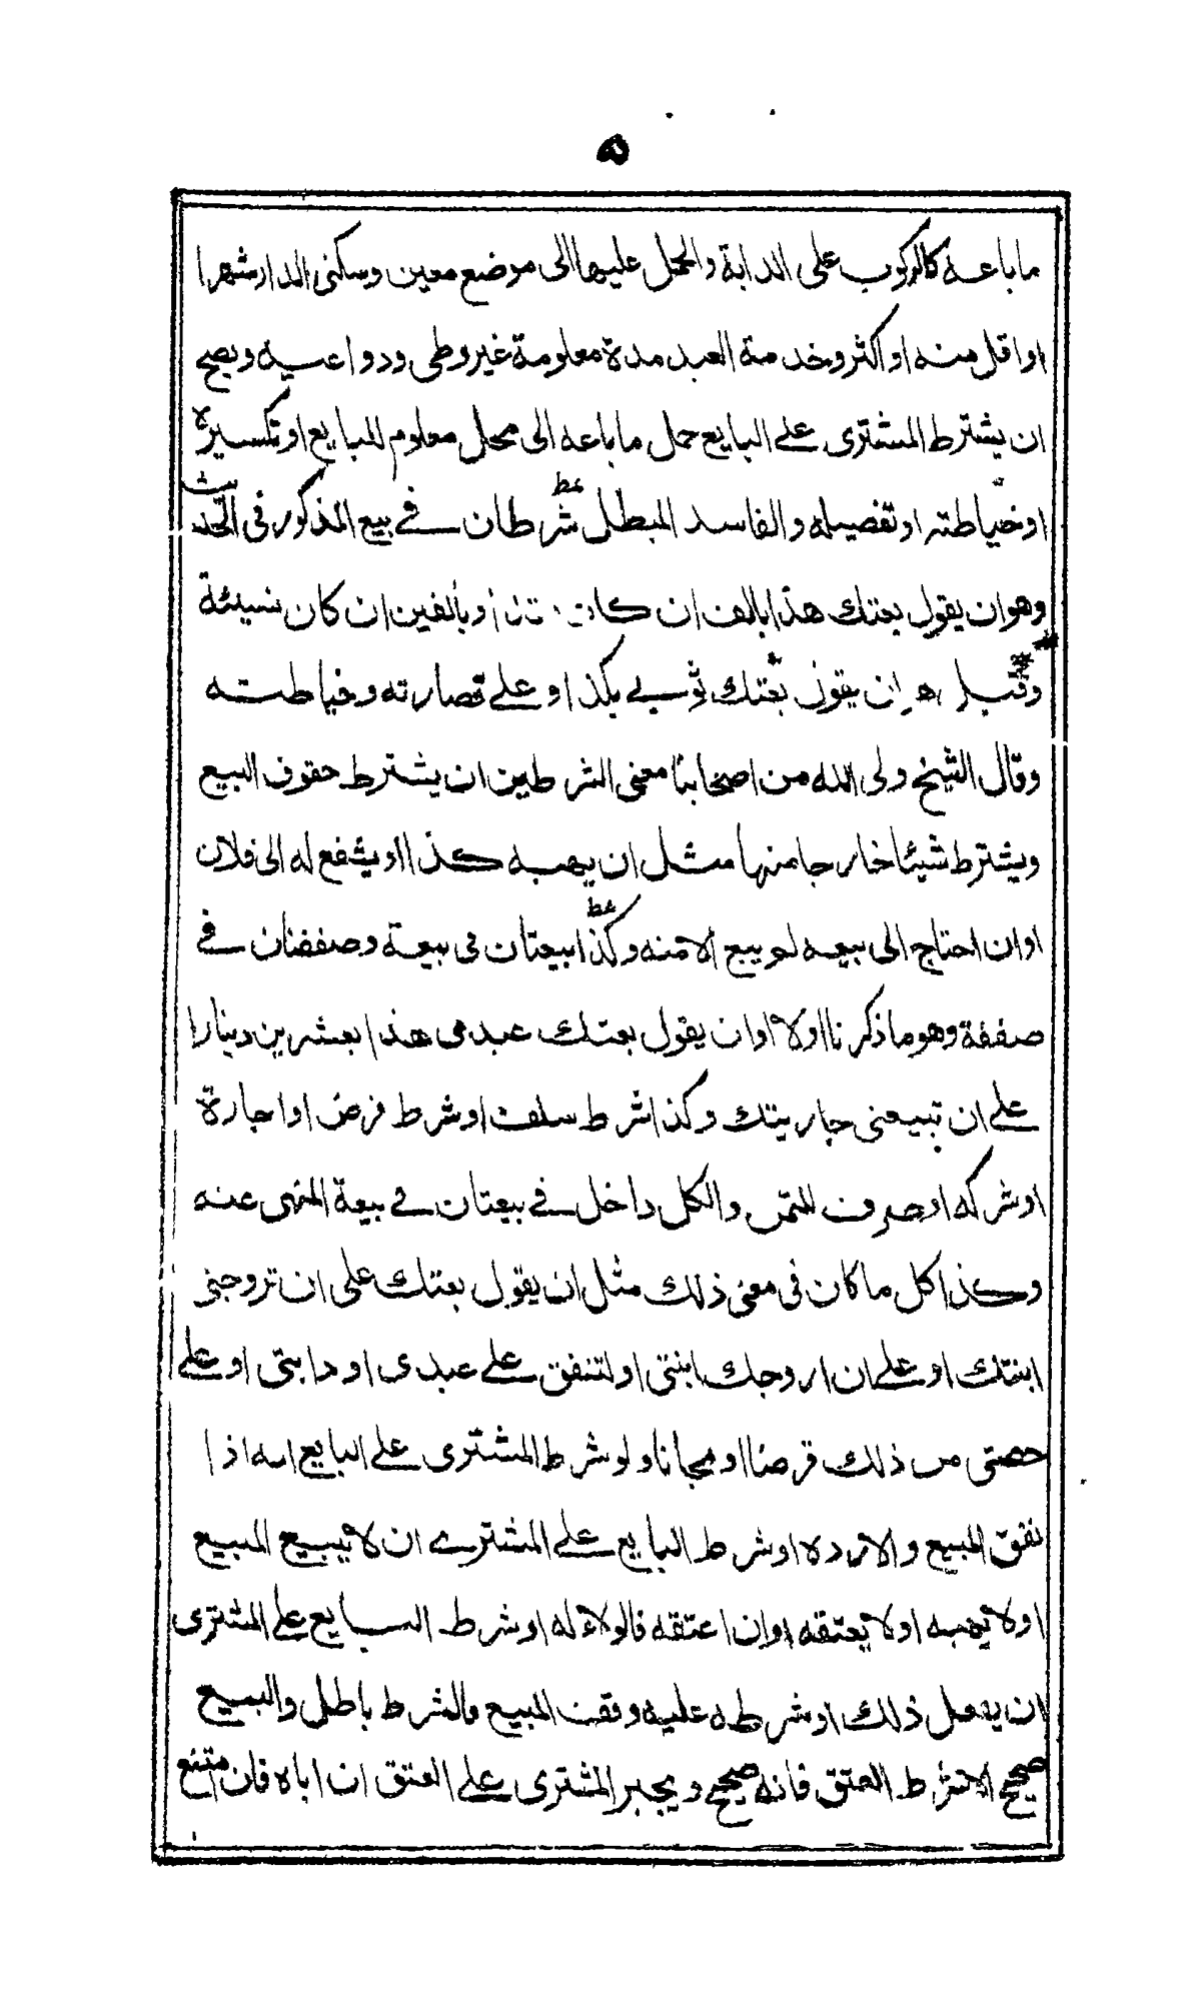 ۵
ما باعه كالركوب على الدابة والحمل عليها الى موضع معين وسكنى الدار شهرا
او اقل منه او اكثر وخدمة العبد مدة معلومة غير وطى ودواعيه ويصح
ان يشترط المشترى على البايع حمل ما باعه الى محل معلوم للبايع او تكسيره
او خياطته او تفصيله والفاسد المبطل شرطان فى بيع المذكور فى الحديث
وهو ان يقول بعتك هذا بالف ان كان او بألفين ان كان نسيئة
وقيل هو ان يقول بعتك ثوبى بكذا وعلى قصارته وخياطته
وقال الشيخ ولى الله من اصحابنا معنى الشرطين ان يشترط حقوق البيع
ويشترط شيئا خارجا منها مثل ان يهبه كذا او يشفع له الى فلان
او ان احتاج الى بيعه لم يبع ألا منه وكذا بيعتان فى بيعة وصفقتان فى
صفقة وهو ما ذكرنا اولا او ان يقول بعتك عبدى هذا بعشرين دينارا
على ان تبيعنى جاريتك وكذا شرط سلف او شرط قرض او اجارة
او شركه او صرف للثمن والكل داخل فى بيعتان فى بيعة المنهى عنه
وكذا كل ما كان فى معنى ذلك مثل ان يقول بعتك على ان تزوجنى
ابنتك او على ان ازوجك ابنتى او لتنفق على عبدى او دابتى او على
حصتى من ذلك قرضا او مجانا ولو شرط المشترى على البايع انه اذا
نفق المبيع والا رده او شرط البايع على المشترى ان لا يبيع المبيع
او لا يهبه او لا يعتقه او ان اعتقه فالولاء له او شرط البايع على المشترى
ان يفعل ذلك او شرط عليه وقف المبيع فالشرط باطل والبيع
صحيح الا شرط العتق فانه صحيح ويجبر المشترى على العتق ان اباه فان امتنع